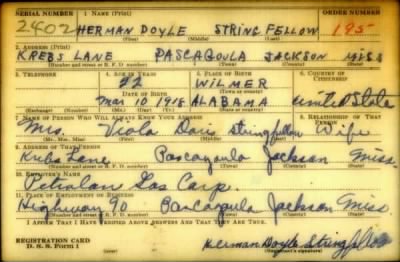 SERIAL NUMBER 1. NAME (Print) ORDER NUMBER
2402 HERMAN DOYLE STRINGFELLOW 195
(First) (Middle) (Last)
2. ADDRESS (Print)
KREBS LANE PASCAGOULA JACKSON MISS
(Number and street or R. F. D. number) (Town) (County) (State)
3. TELEPHONE 4. AGE IN YEARS 5. PLACE OF BIRTH 6. COUNTRY OF CITIZENSHIP
22 WILMER
DATE OF BIRTH (Town or county)
Mar 10 1918 ALABAMA United States
(Mo.) (Day) (Yr.) (State or country)
7. NAME OF PERSON WHO WILL ALWAYS KNOW YOUR ADDRESS 8. RELATIONSHIP OF THAT PERSON
Mrs. Viola Doris Stringfellow Wife
(Mr., Mrs., Miss) (First) (Middle) (Last)
9. ADDRESS OF THAT PERSON
Krebs Lane Pascagoula Jackson Miss.
(Number and street or R. F. D. number) (Town) (County) (State)
10. EMPLOYER'S NAME
Petrolan Gas Corp.
11. PLACE OF EMPLOYMENT OR BUSINESS
Highway 90 Pascagoula Jackson Miss.
(Number and street or R. F. D. number) (Town) (County) (State)
I AFFIRM THAT I HAVE VERIFIED ABOVE ANSWERS AND THAT THEY ARE TRUE.
REGISTRATION CARD
D. S. S. Form 1 Herman Doyle Stringfellow
(Registrant's signature)